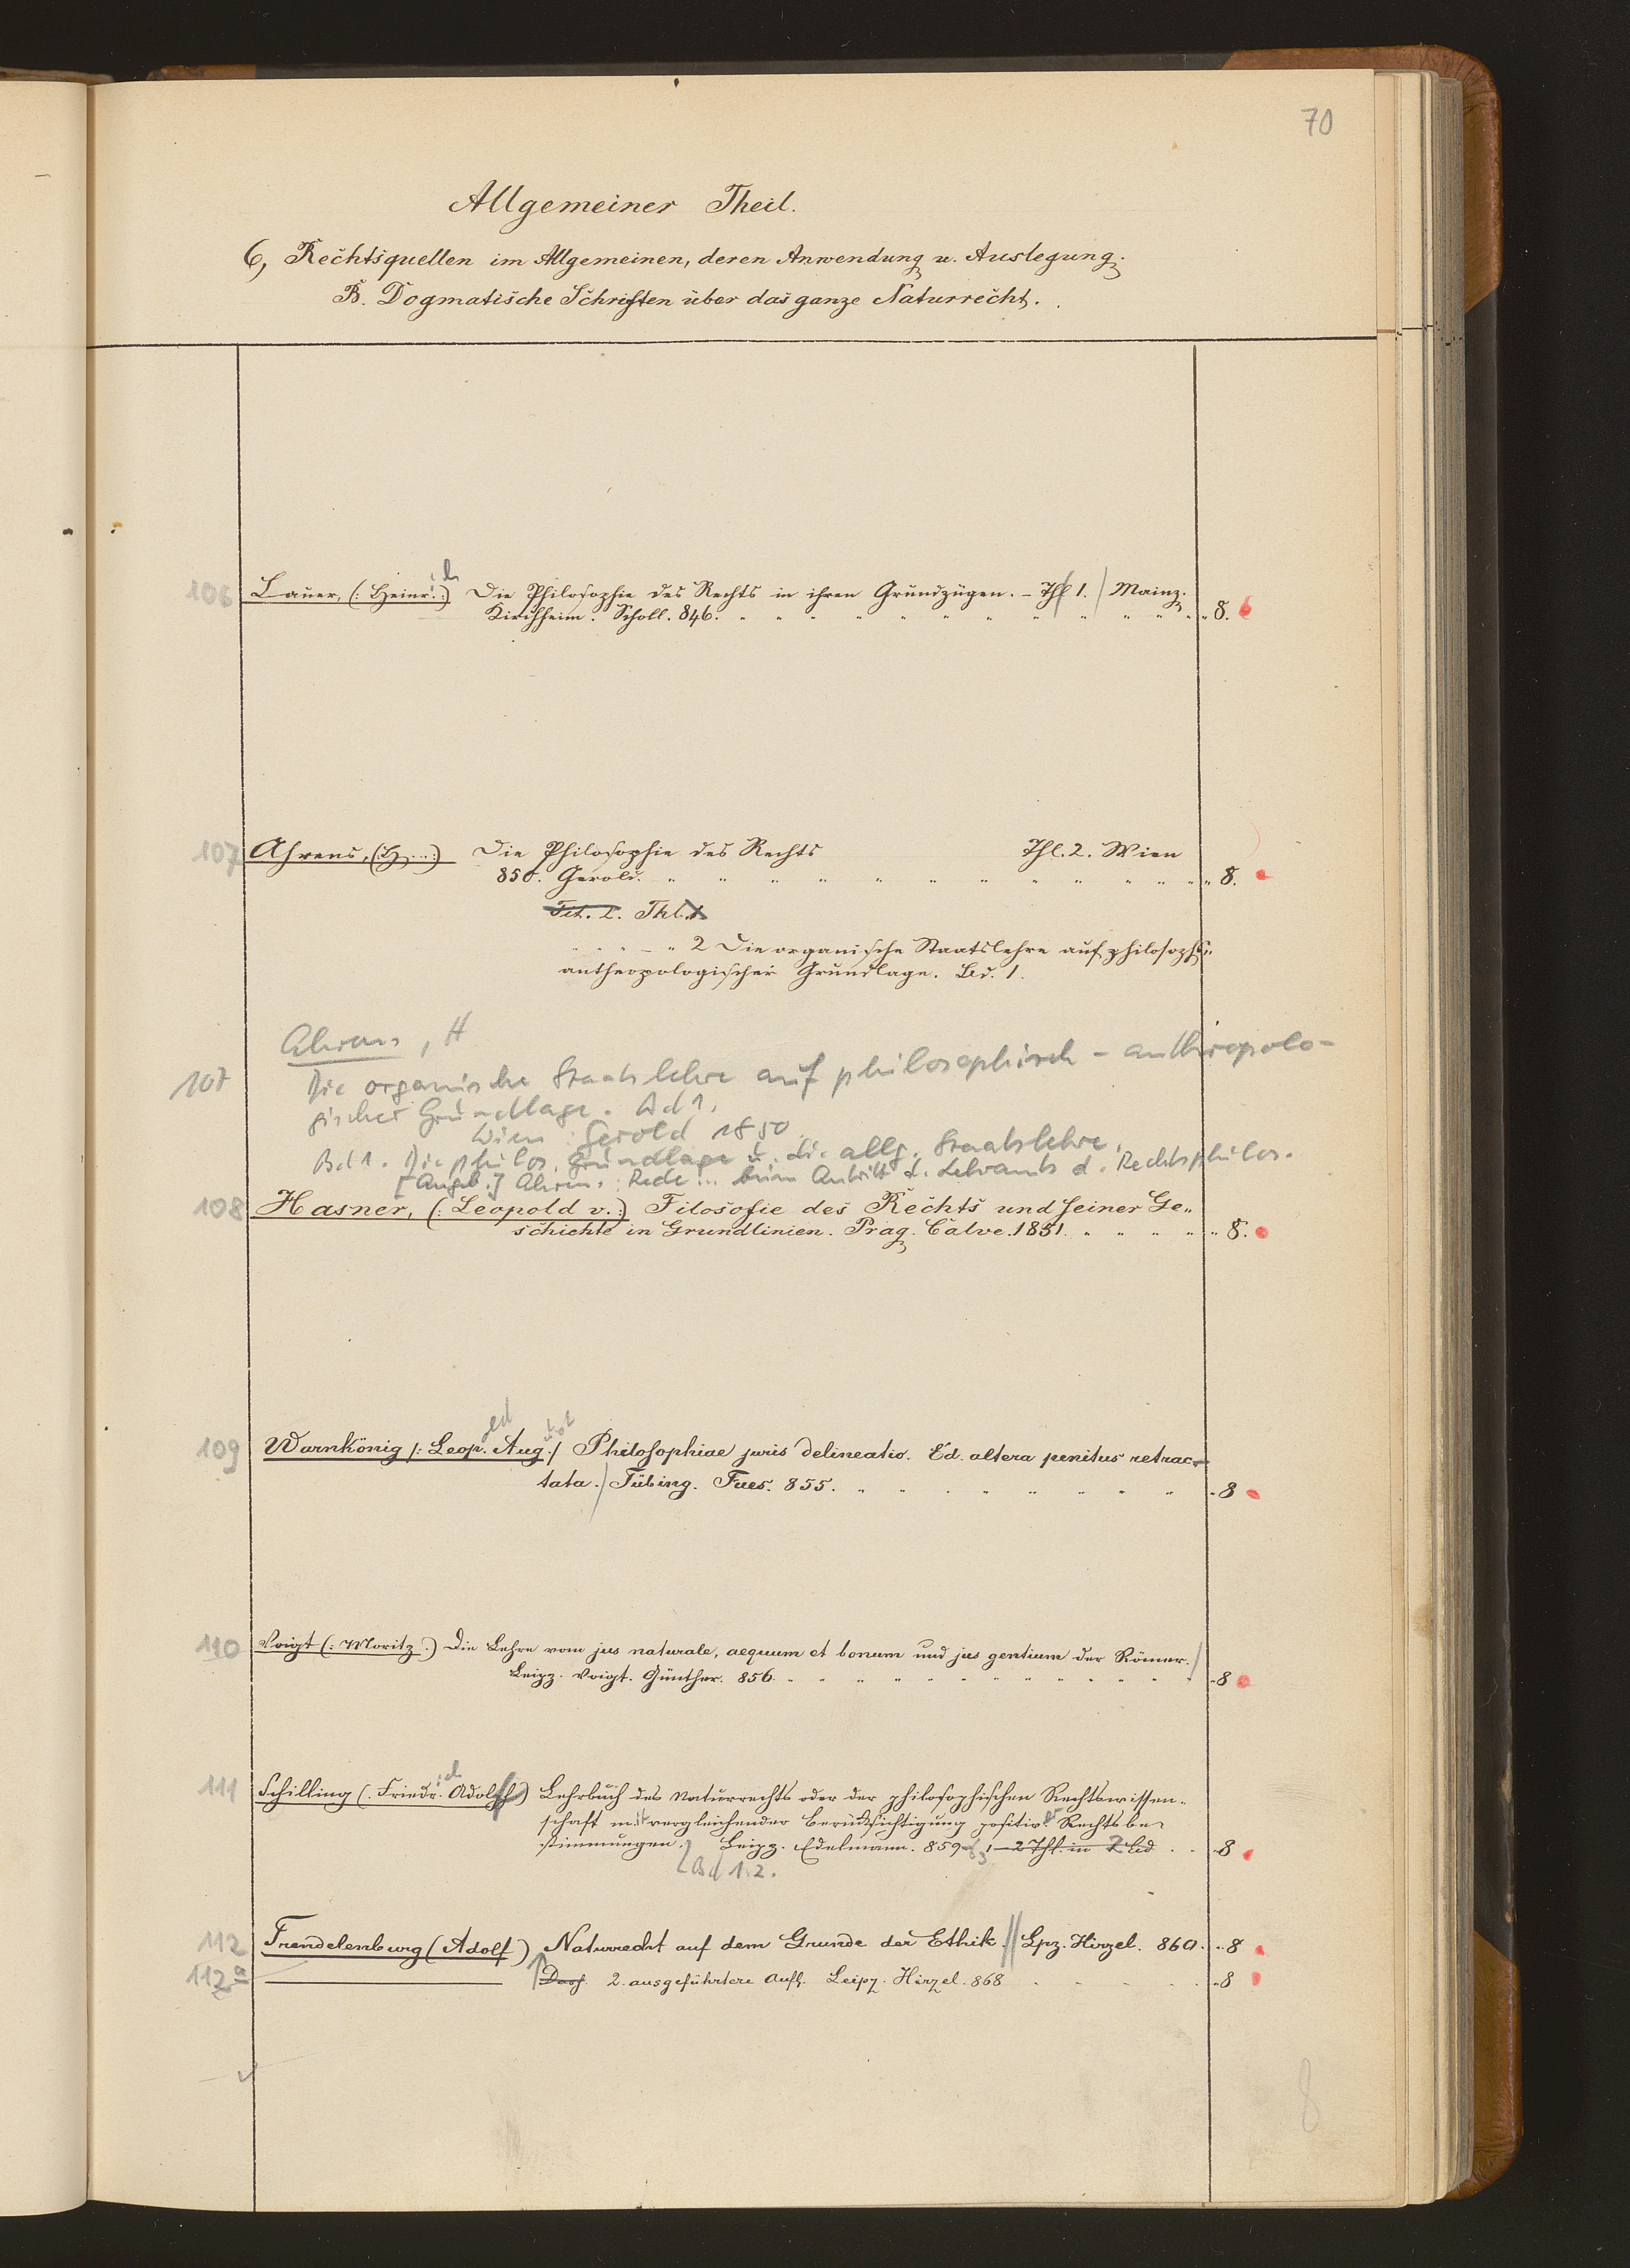 70
Allgemeiner Theil.
6, Rechtsquellen im Allgemeinen, deren Anwendung u. Auslegung.
B. Dogmatische Schriften über das ganze Naturrecht.
106 Lauer, (: Heinr.:) ich Die Philosophie des Rechts in ihren Grundzügen. – Thl 1. / Mainz.
Kirchheim. Scholl. 846. " " " " " " " " " " " 8.
107 Ahrens, (: H...:) Die Philosophie des Rechts Thl. 2. Wien
850. Gerold. " " " " " " " " " " " 8.
Tit. 2. Thl. 1
" " " – " 2 Die organische Staatslehre auf philosoph."
anthropologischer Grundlage. Bd. 1.
Ahrens, H
107 Die organische Staatslehre auf philosophisch-anthropolo-
gischer Grundlage. Bd 1.
Wien: Gerold 1850.
Bd 1. Die philos. Grundlage u. die allg. Staatslehre.
[Angeb.] Ahrens: Rede... beim Antritt d. Lehramts d. Rechtsphilos.
108 Hasner, (: Leopold v.:) Filosofie des Rechts und seiner Ge"
schichte in Grundlinien. Prag. Calve. 1851. " " " " " 8.
109 Warnkönig /: Leop. old Aug. ust :/ Philosophiae juris delineatio. Ed. altera penitus retrac-
tata. / Tübing. Fues. 855. " " " " " " " " 8
110 Voigt (: Moritz :) Die Lehre vom jus naturale, aequum et bonum und jus gentium der Römer. /
Leipz. Voigt. Günther. 856. " " " " " " " " " " 8
111 Schilling (. Friedr. ich Adolph) Lehrbuch des Naturrechts oder der philosophischen Rechtswissen-
schaft mit vergleichender Berücksichtigung positiver Rechtsbe-
stimmungen. Leipz. Edelmann. 859–63 1–2 Thl. in 2 Bd . . 8
Bd 1.2.
112 Trendelenburg (Adolf) Naturrecht auf dem Grunde der Ethik. // Lpz. Hirzel. 860. " 8
112a Dass. 2. ausgeführtere Aufl. Leipz. Hirzel. 868 " 8
8